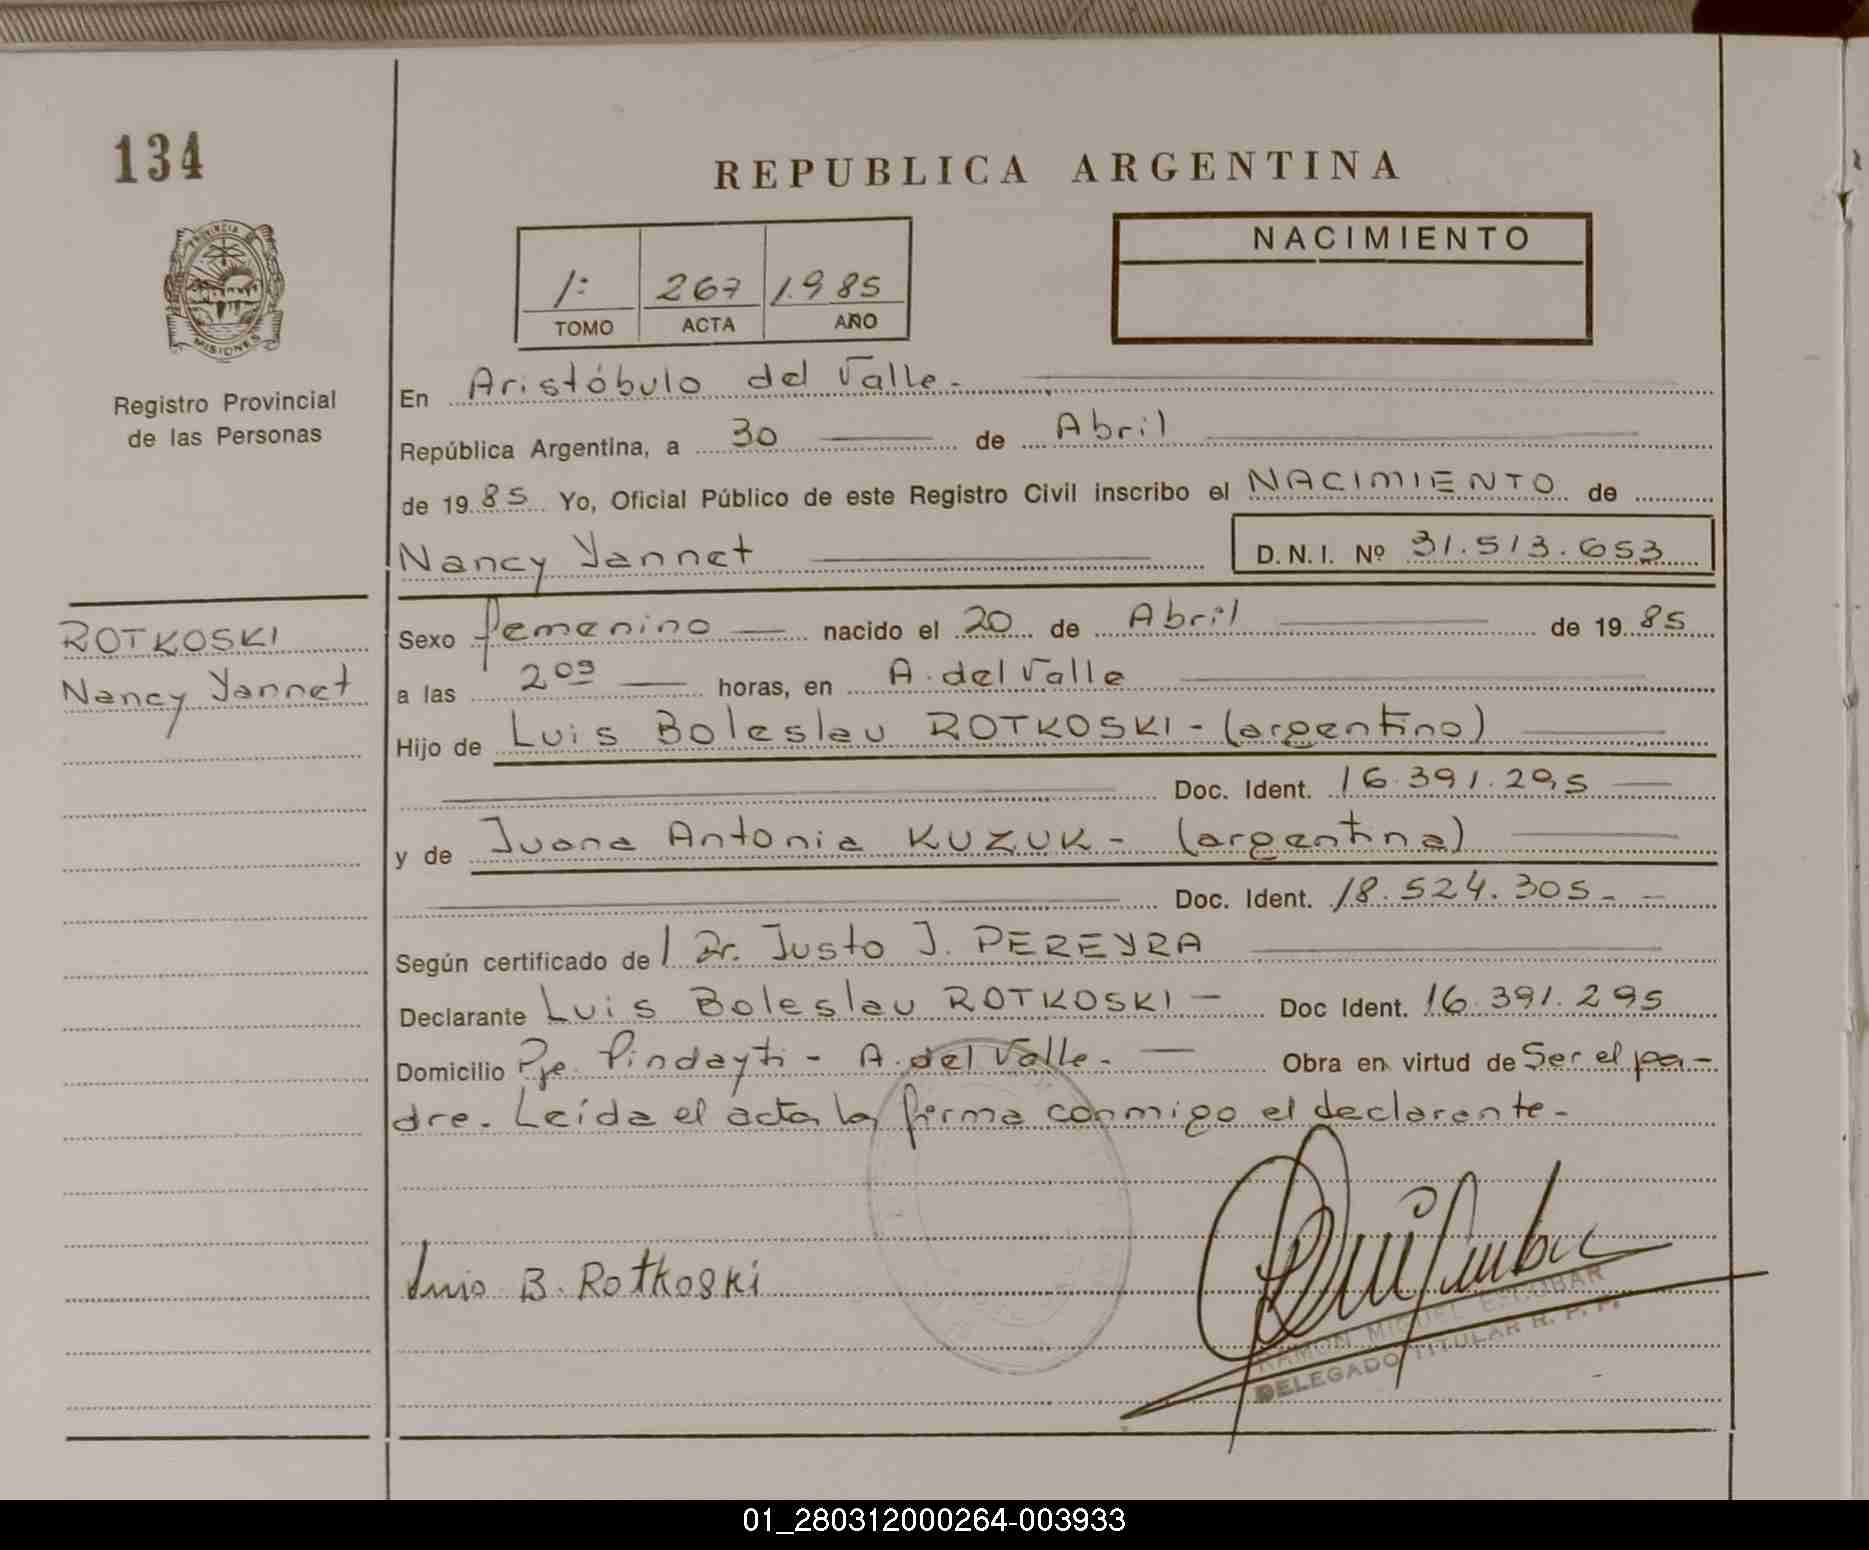 134
REPUBLICA ARGENTINA
PROVINCIA DE
MISIONES
Registro Provincial
de las Personas
1: 267 1.985
TOMO ACTA AÑO
NACIMIENTO
En Aristóbulo del Valle.-
República Argentina, a 30 de Abril
de 1985 Yo, Oficial Público de este Registro Civil inscribo el NACIMIENTO de
Nancy Yannet D.N.I. Nº 31.513.653
ROTKOSKI
Nancy Yannet
Sexo femenino nacido el 20 de Abril de 1985
a las 2 horas, en A. del Valle
Hijo de Luis Boleslau ROTKOSKI - (argentino)
Doc. Ident. 16.391.295
y de Juana Antonia KUZUK - (argentina)
Doc. Ident. 18.524.305 -
Según certificado de Dr. Justo J. PEREYRA
Declarante Luis Boleslau ROTKOSKI - Doc Ident. 16.391.295
Domicilio Pje. Pindayti - A. del Valle. - Obra en virtud de Ser el pa-
dre. Leída el acta la firma conmigo el declarante.-
Luis B. Rotkoski
RAMON MIGUEL ESCOBAR
DELEGADO TITULAR R. P. P.
01_280312000264-003933